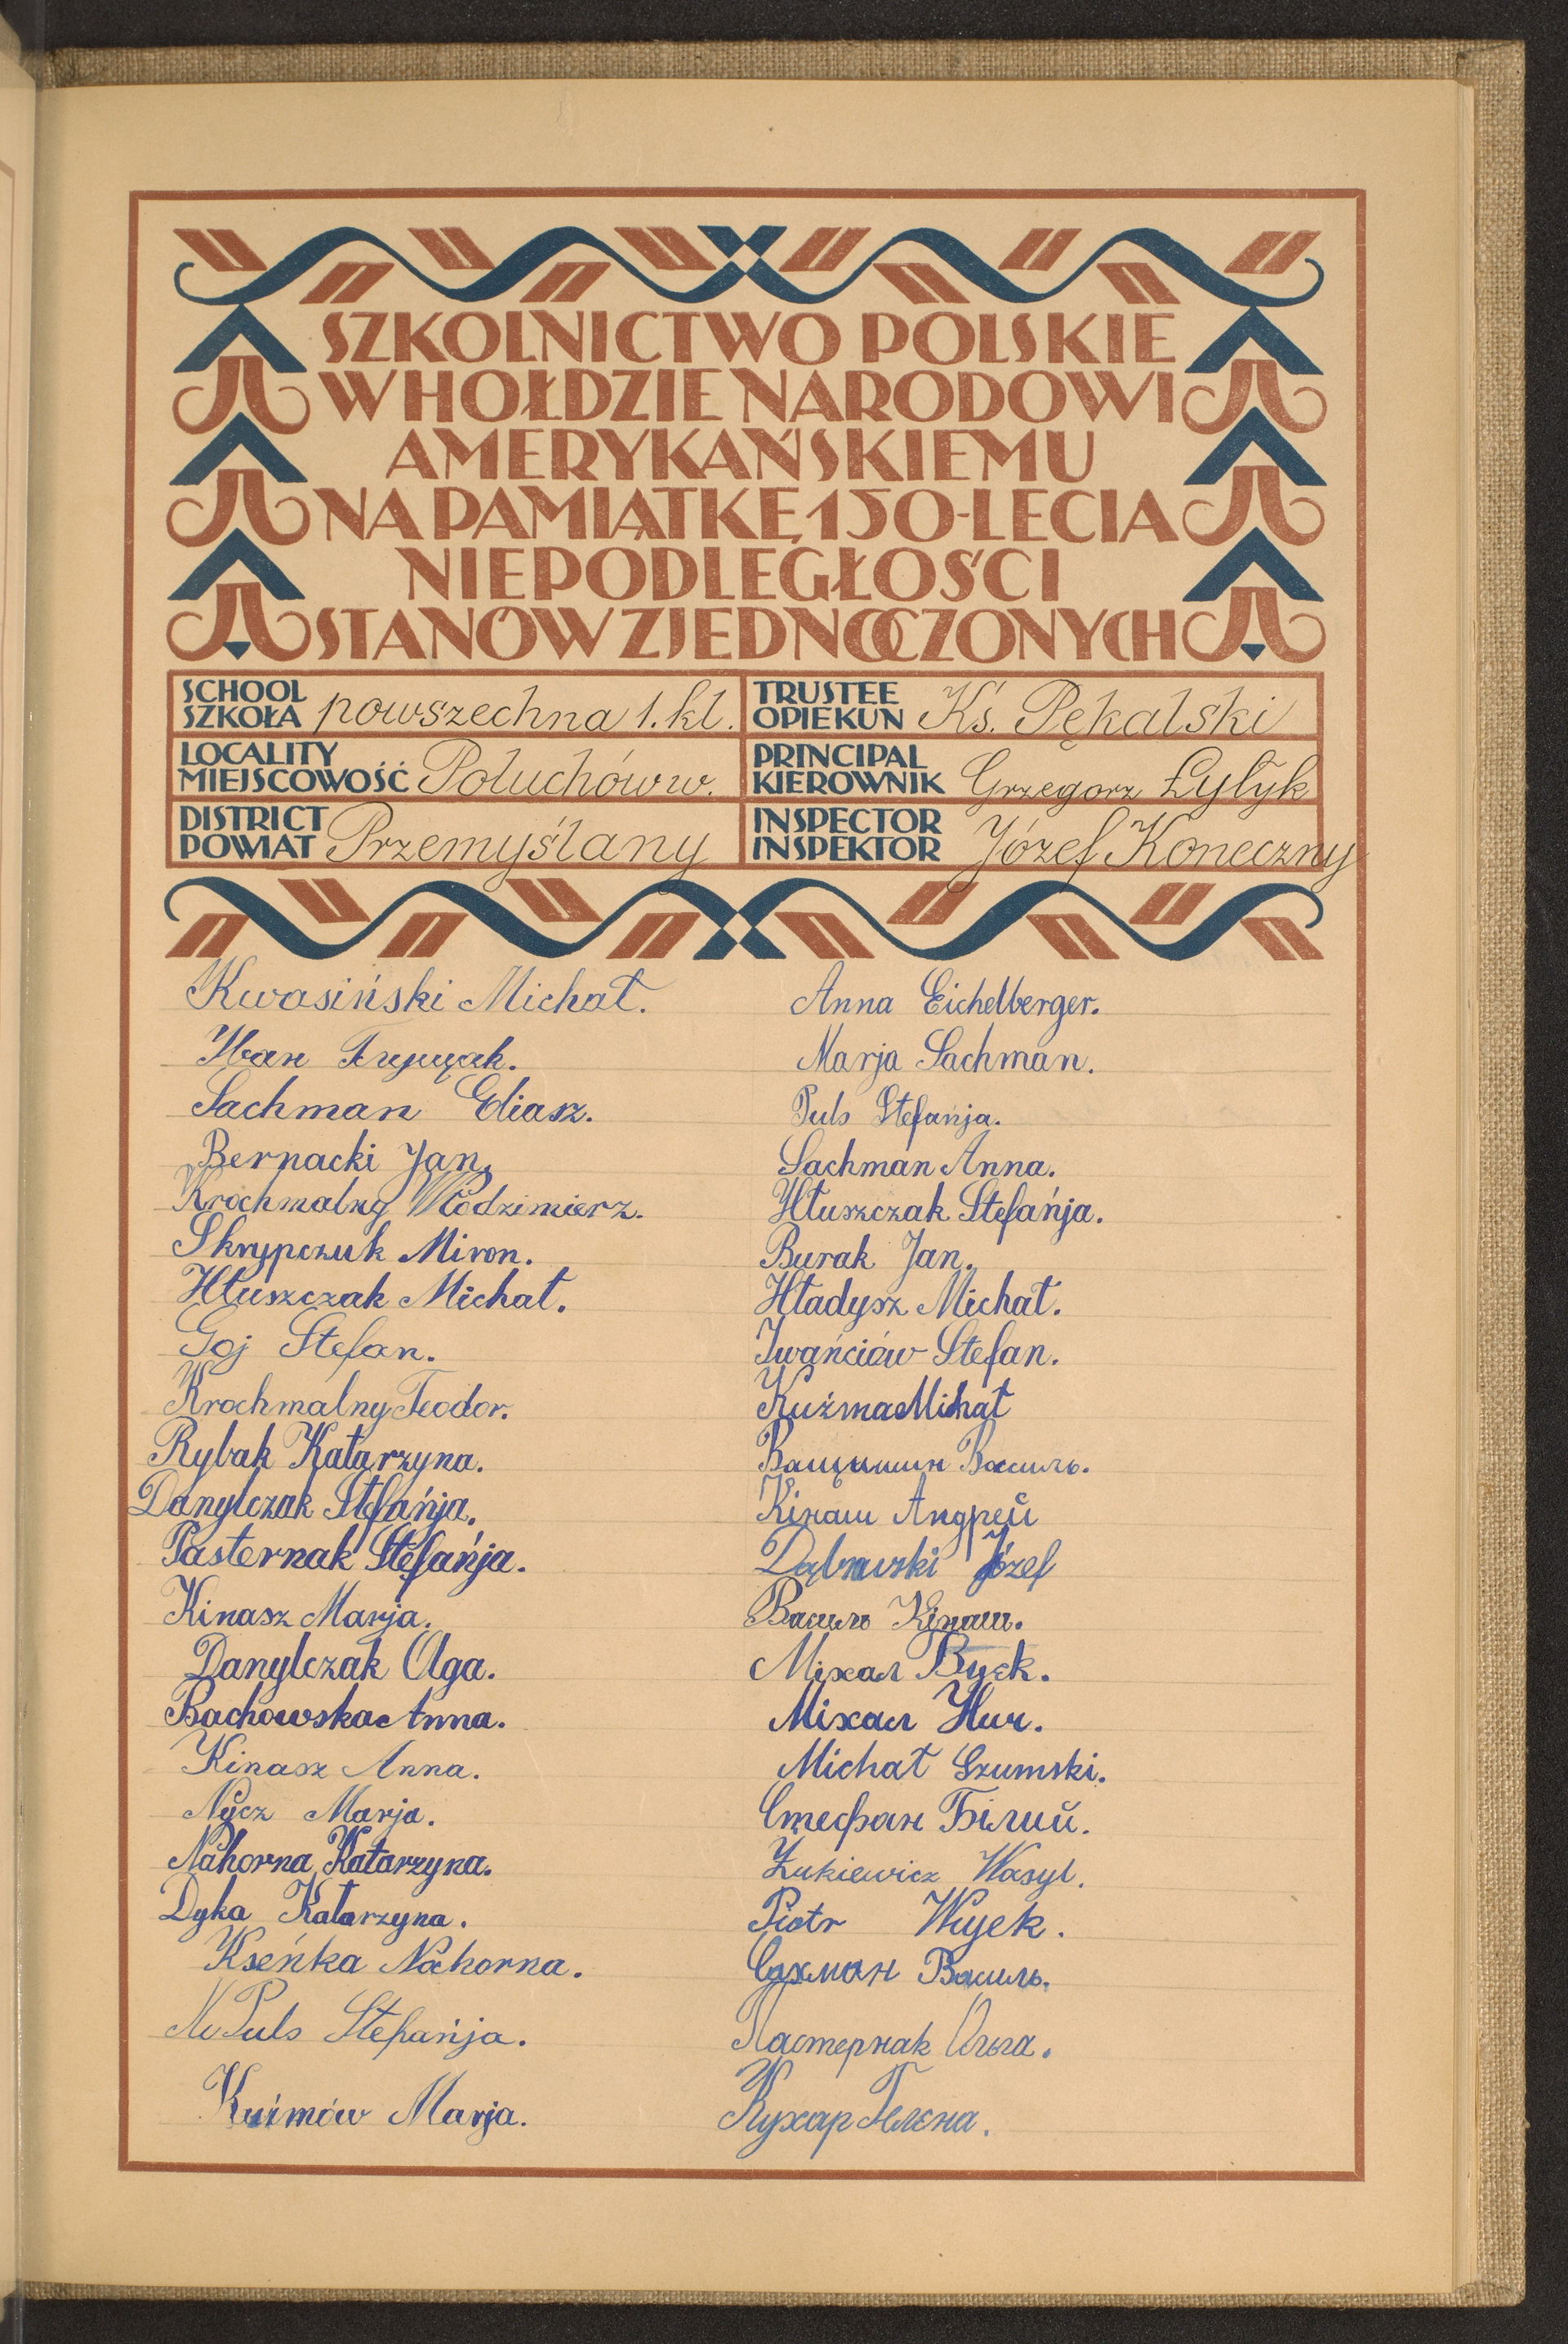 SZKOLNICTWO POLSKIE
W HOŁDZIE NARODOWI
AMERYKAŃSKIEMU
NA PAMIĄTKĘ 150-LECIA
NIEPODLEGŁOŚCI
STANÓW ZJEDNOCZONYCH
SCHOOL
SZKOŁA powszechna 1. kl.
TRUSTEE
OPIEKUN Kś. Pękalski
LOCALITY
MIEJSCOWOŚĆ Połuchów w.
PRINCIPAL
KIEROWNIK Grzegorz Łylyk
DISTRICT
POWIAT Przemyślany
INSPECTOR
INSPEKTOR Józef Koneczny
Kwasiński Michał.
Іван
Sachman Eliasz.
Bernacki Jan.
Krochmalny Włodzimierz.
Skrypczuk Miron.
Hłuszczak Michał.
Goj Stefan.
Krochmalny Teodor.
Rybak Katarzyna.
Danylczak Stefańja.
Pasternak Stefańja.
Kinasz Marja.
Danylczak Olga.
Bachowska Anna.
Kinasz Anna.
Nycz Marja.
Nahorna Katarzyna.
Dyka Katarzyna.
Kseńka Nahorna.
Puls Stefańja.
Kuimów Marja.
Anna Eichelberger.
Marja Sachman.
Puls Stefańja.
Sachman Anna.
Hłuszczak Stefańja.
Burak Jan.
Hładysz Michał.
Iwańciów Stefan.
Kuźma Michał
Ващишин Василь.
Кінаш Андрей
Dąbrowski Józef
Василь Кінаш.
Міхал Вуєк.
Міхал Нич.
Michał Szumski.
Стефан Білий.
Żukiewicz Wasyl.
Piotr Wujek.
Сахман Василь.
Пастернак Ольга.
Кухар Гелєна.